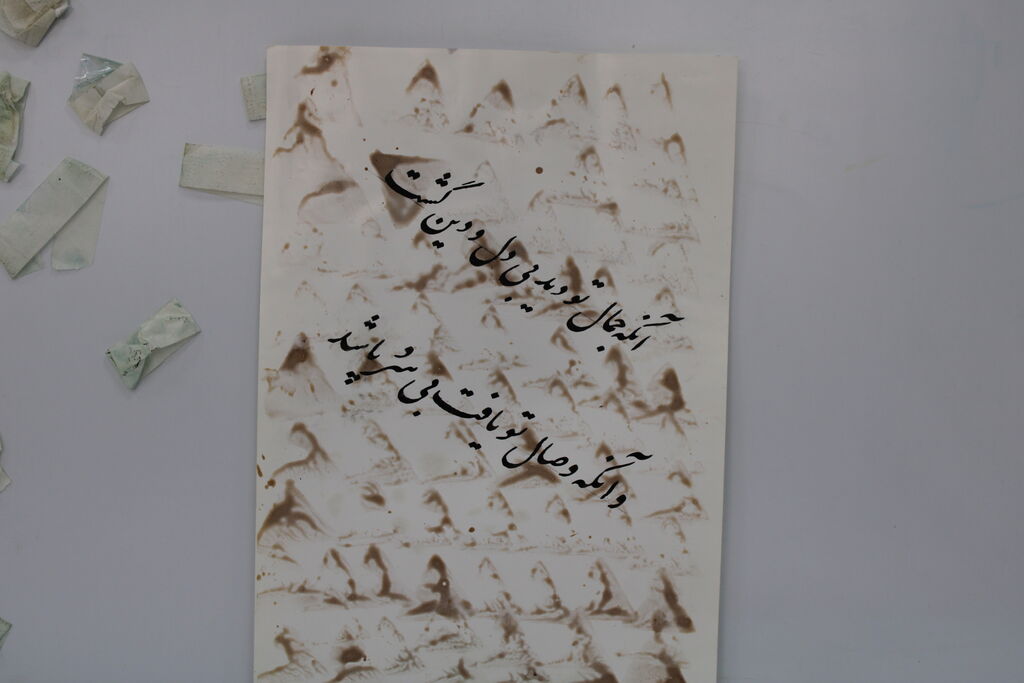 آنکه جمال تو دید بی دل و دین گشت
وآنکه وصال تو یافت بی سر و پا شد